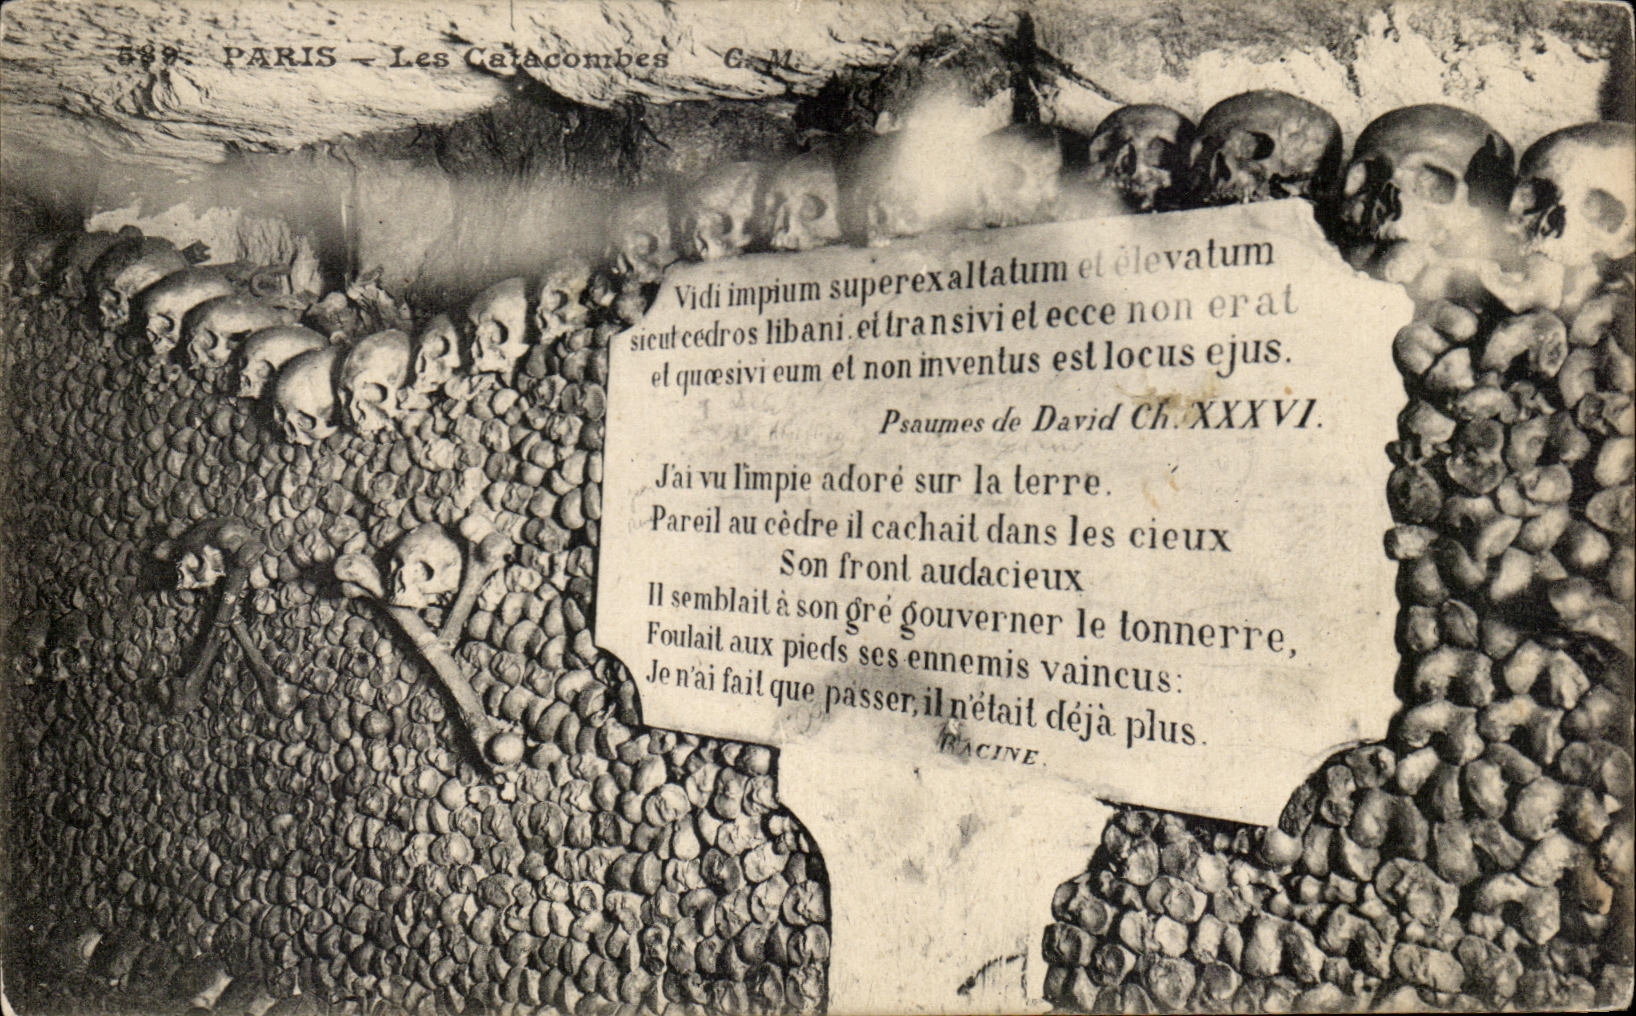 539. PARIS — Les Catacombes C. M.
Vidi impium superexaltatum et élevatum
sicut cedros libani. et transivi et ecce non erat
et quœsivi eum et non inventus est locus ejus.
Psaumes de David Ch. XXXVI.
J'ai vu l'impie adoré sur la terre.
Pareil au cèdre il cachait dans les cieux
Son front audacieux
Il semblait à son gré gouverner le tonnerre,
Foulait aux pieds ses ennemis vaincus:
Je n'ai fait que passer, il n'était déjà plus.
RACINE.